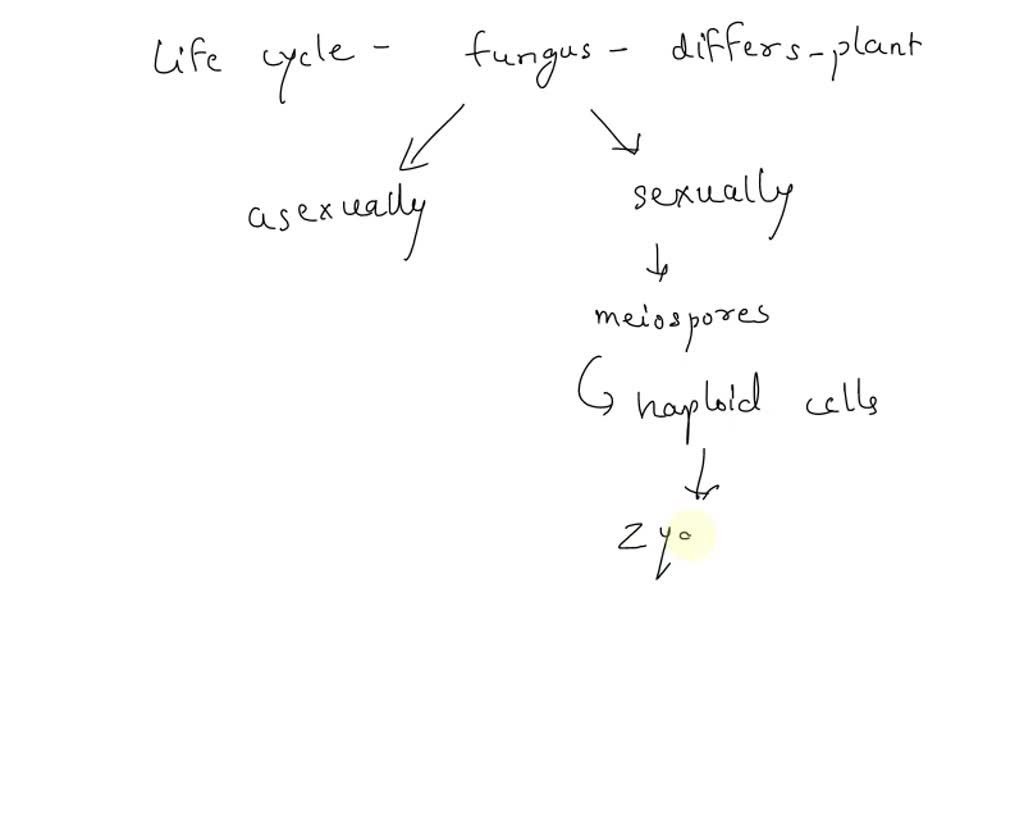 Life cycle - fungus - differs - plant
asexually
sexually
meiospores
haploid cells
zyg